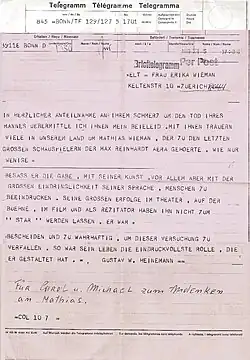 Telegramm Télégramme Telegramma
845 =BONN/TF 129/127 5 1701 =
Brieftelegramm Per Post
=ELT - FRAU ERIKA WIEMAN
KELTENSTR 10 =ZUERICH
IN HERZLICHER ANTEILNAHME AN IHREM SCHMERZ UM DEN TOD IHRES
MANNES UEBERMITTLE ICH IHNEN MEIN BEILEID .MIT IHNEN TRAUERN
VIELE IN UNSEREM LAND UM MATHIAS WIEMAN, DER ZU DEN LETZTEN
GROSSEN SCHAUSPIELERN DER MAX REINHARDT AERA GEHOERTE. WIE NUR
WENIGE =
BESASS ER DIE GABE , MIT SEINER KUNST ,VOR ALLEM ABER MIT DER
GROSSEN EINDRINGLICHKEIT SEINER SPRACHE, MENSCHEN ZU
BEEINDRUCKEN. SEINE GROSSEN ERFOLGE IM THEATER , AUF DER
BUEHNE, IM FILM UND ALS REZITATOR HABEN IHN NICHT ZUM
'' STAR '' WERDEN LASSEN. ER WAR =
BESCHEIDEN UND ZU WAHRHAFTIG, UM DIESER VERSUCHUNG ZU
VERFALLEN . SO WAR SEIN LEBEN DIE EINDRUCKVOLLSTE ROLLE , DIE
ER GESTALTET HAT .= , GUSTAV W. HEINEMANN ==
Für Carol u. Michael zum Andenken
an Mathias.
=COL 10 ? =